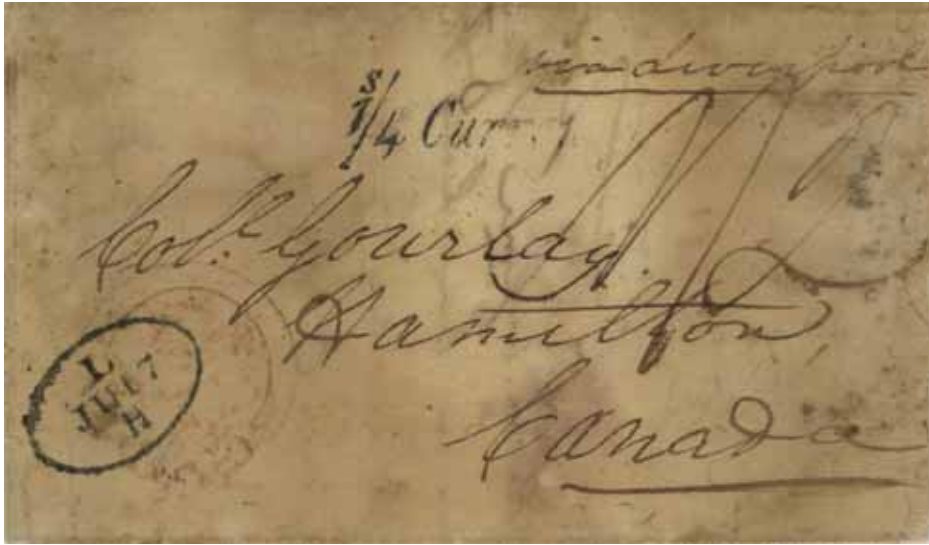 via Liverpool
s/
1/4 Curr.y
Col.l Gourlay.
Hamilton
Canada
L
JU 17
H